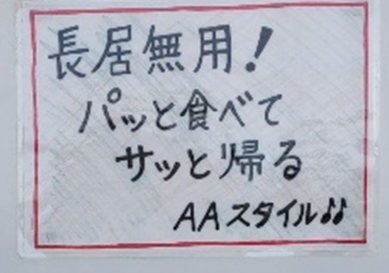 長居無用!
パッと食べて
サッと帰る
AAスタイル♪♪